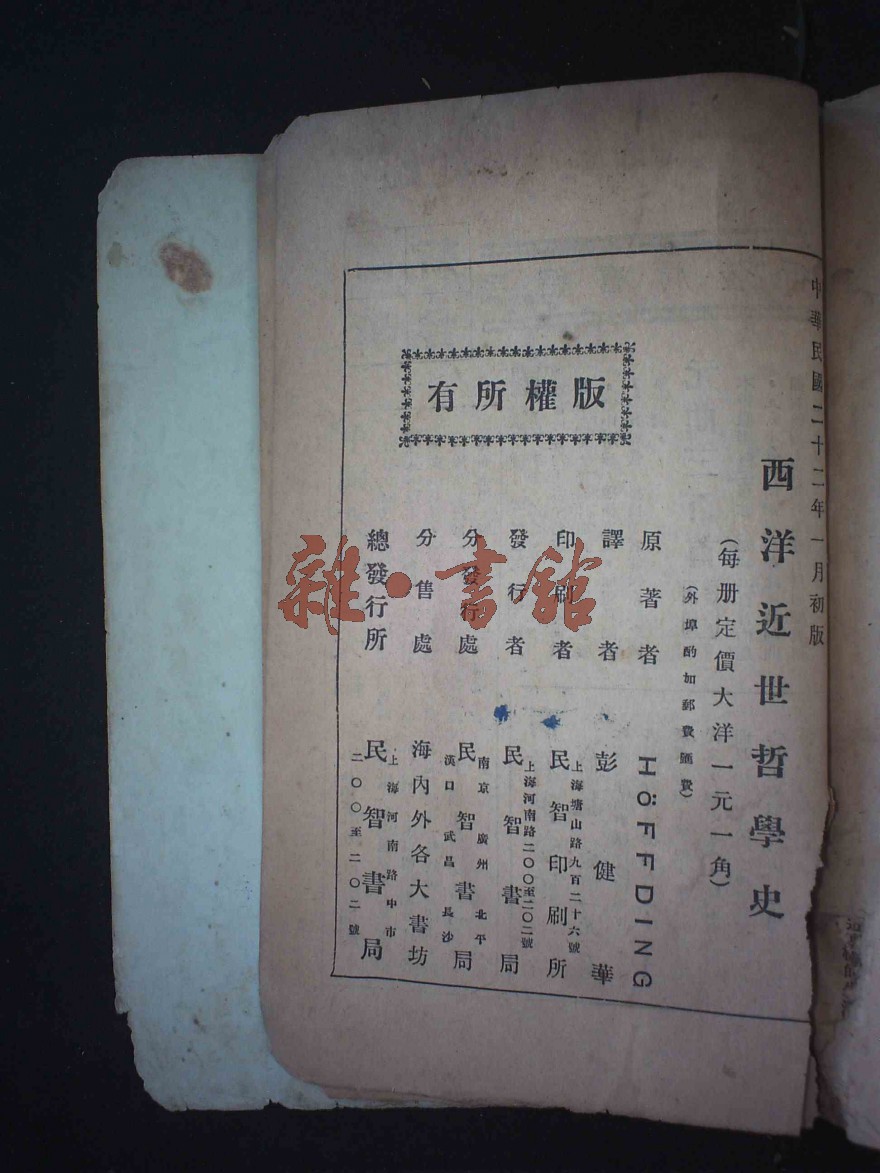 中華民國二十二年一月初版
西洋近世哲學史
（每册定價大洋一元一角）
（外埠酌加郵費匯費）
版權所有
原著者 HÖFFDING
譯者 彭健華
印刷者 民智印刷所
上海塘山路九百二十六號
發行者 民智書局
上海河南路二〇〇至二〇二號
分發行處 民智書局
南京 廣州 北平
漢口 武昌 長沙
分售處 海內外各大書坊
總發行所 民智書局
上海河南路中市
二〇〇至二〇二號
雜·書館